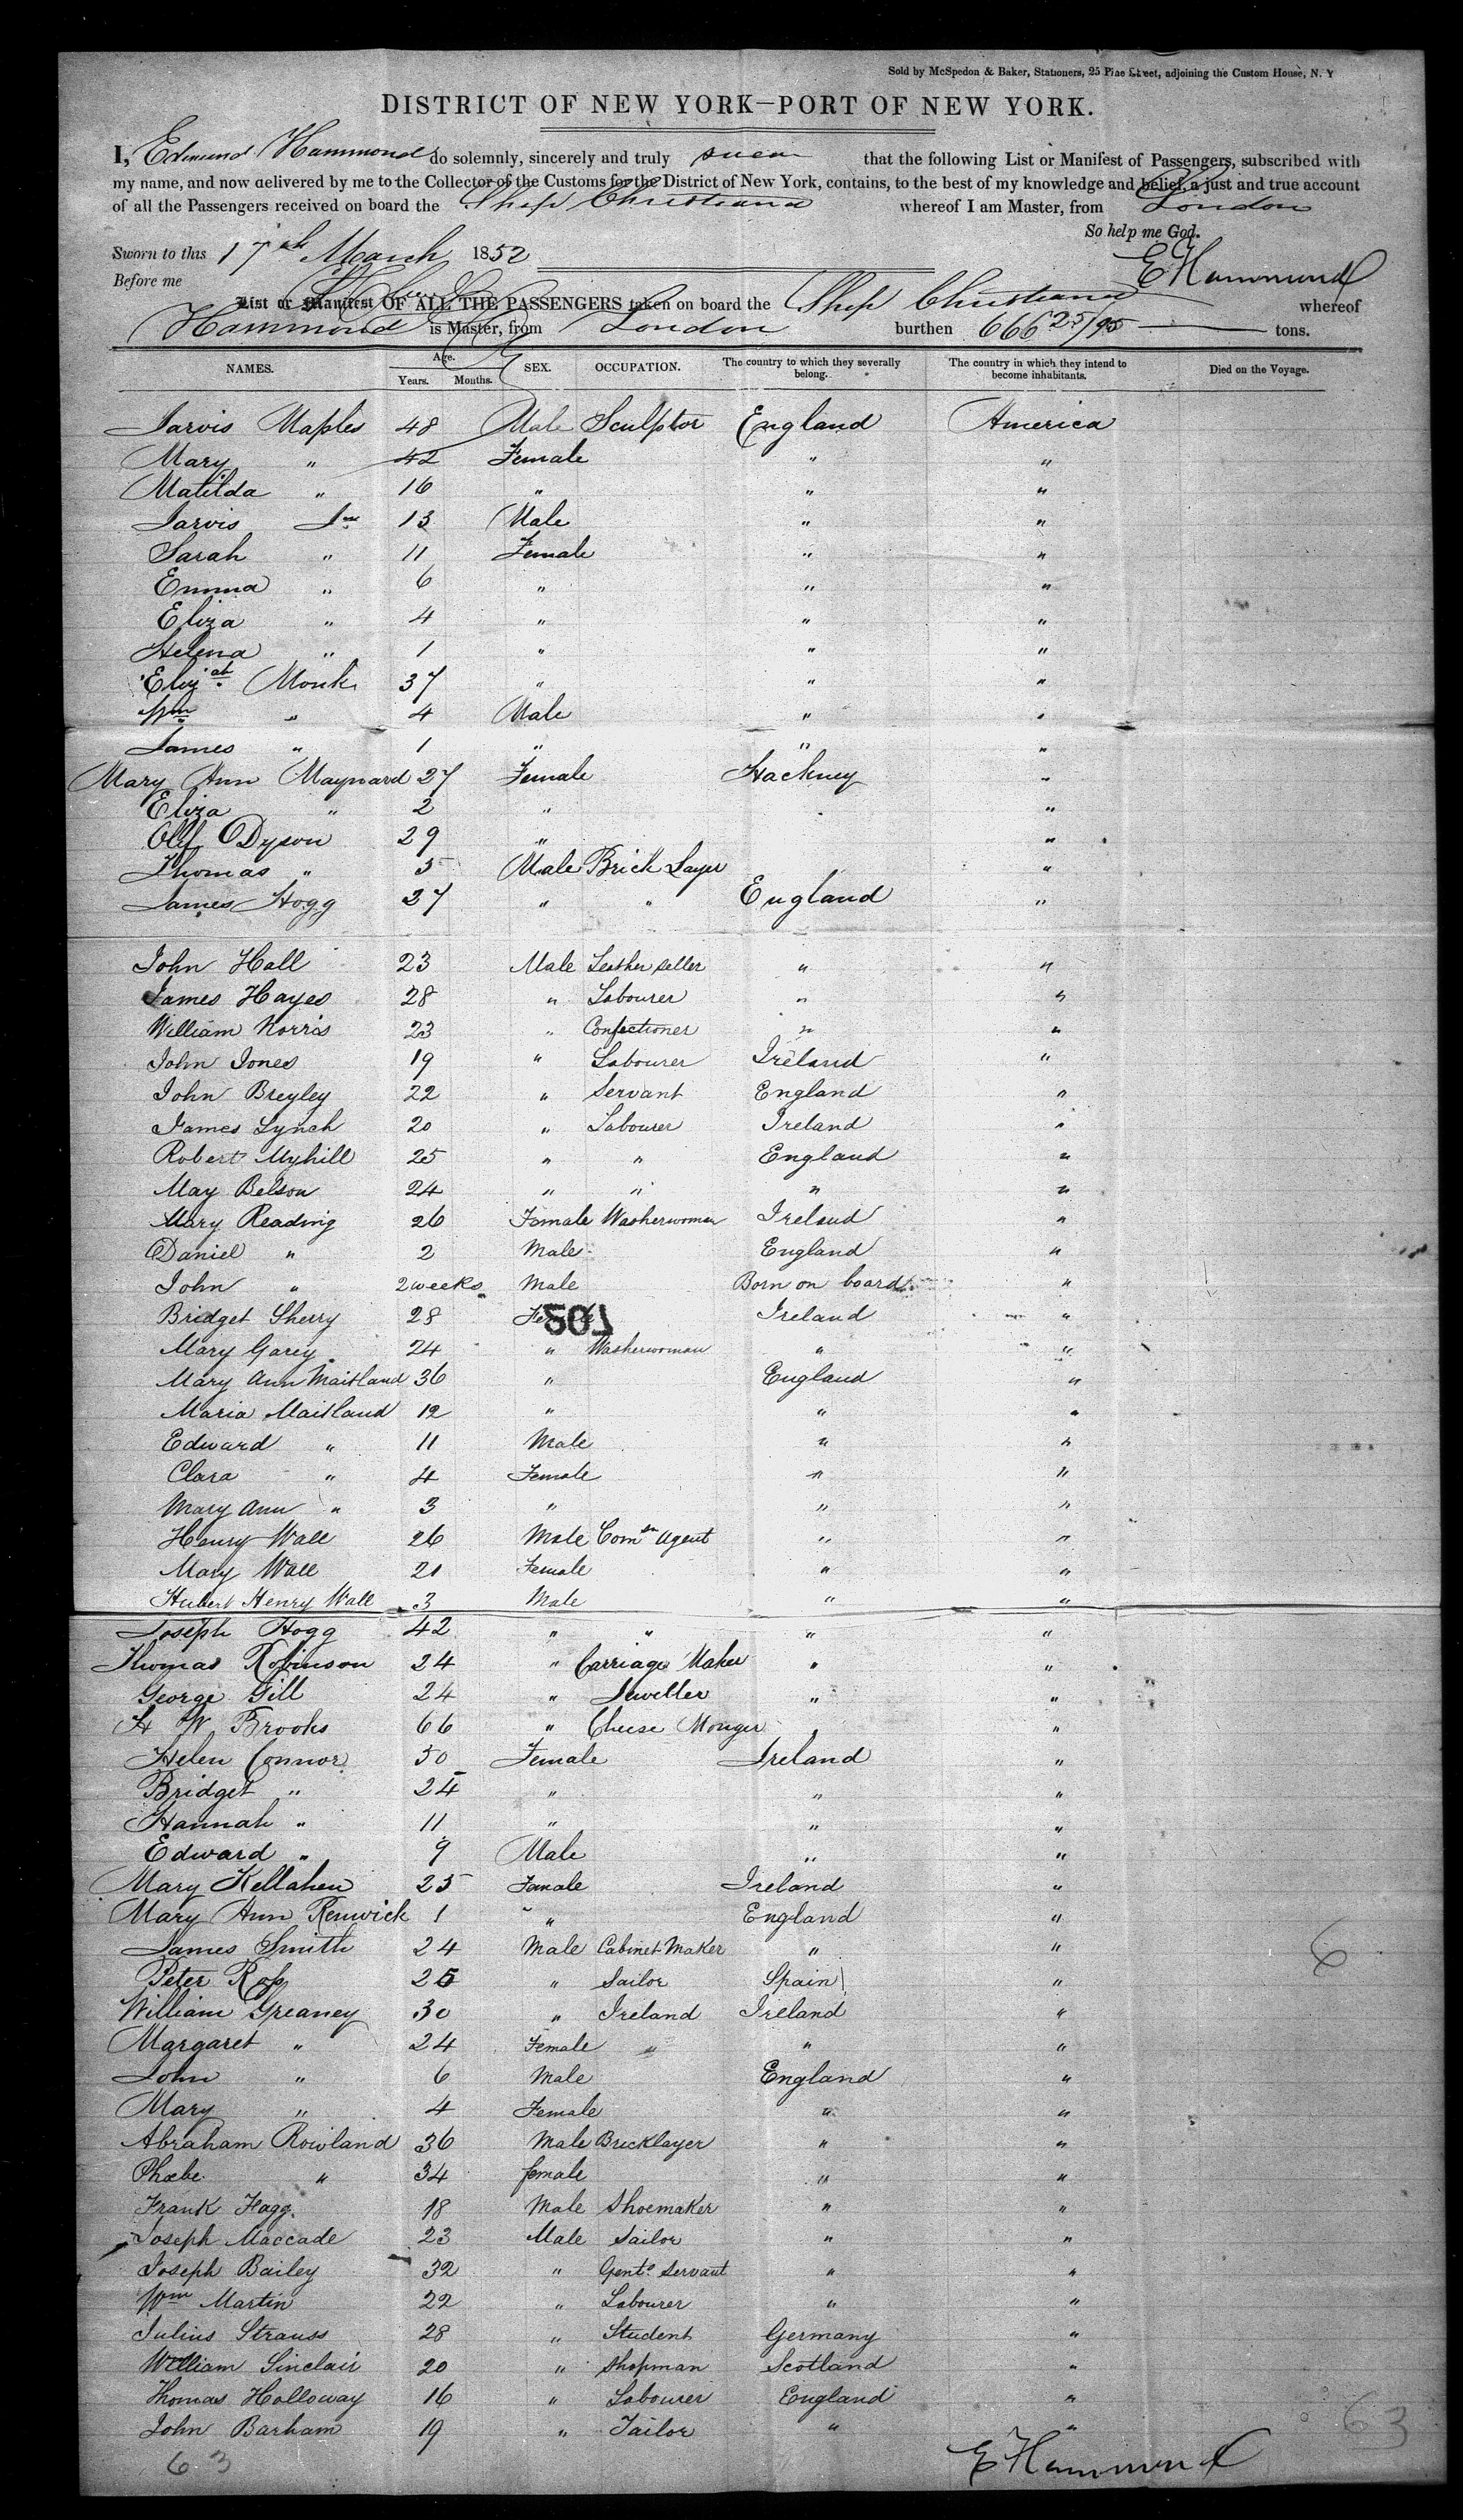 Sold by McSpedon & Baker, Stationers, 25 Pine Street, adjoining the Custom House, N. Y
DISTRICT OF NEW YORK—PORT OF NEW YORK.
I, Edmund Hammond do solemnly, sincerely and truly swear that the following List or Manifest of Passengers, subscribed with
my name, and now delivered by me to the Collector of the Customs for the District of New York, contains, to the best of my knowledge and belief, a just and true account
of all the Passengers received on board the Ship Christiana whereof I am Master, from London
So help me God.
Sworn to this 17th March 1852
E Hammond
Before me
List or Manifest OF ALL THE PASSENGERS taken on board the Ship Christiana whereof
Hammond is Master, from London burthen 666 25/95 tons.
NAMES. Age. Years. Months. SEX. OCCUPATION. The country to which they severally belong. The country in which they intend to become inhabitants. Died on the Voyage.
Jarvis Maples 48 Male Sculptor England America
Mary " 42 Female " "
Matilda " 16 " " "
Jarvis Jnr 13 Male " "
Sarah " 11 Female " "
Emma " 6 " " "
Eliza " 4 " " "
Helena " 1 " " "
Elizath Monk 37 " " "
Wm " 4 Male " "
James " 1 " " "
Mary Ann Maynard 27 Female Hackney "
Eliza " 2 " "
Dyson 29 " "
Thomas " 5 Male Brick Layer "
James Hogg 37 " " England "
John Hall 23 Male Leather seller " "
James Hayes 28 " Labourer " "
William Norris 23 " Confectioner " "
John Jones 19 " Labourer Ireland "
John Breyley 22 " Servant England "
James Lynch 20 " Labourer Ireland "
Robert Myhill 25 " " England "
May Belson 24 " " " "
Mary Reading 26 Female Washerwoman Ireland "
Daniel " 2 Male England "
John " 2 weeks Male Born on board "
Bridget Sherry 28 Female Ireland "
507
Mary Garey 24 " Washerwoman " "
Mary Ann Maitland 36 " England "
Maria Maitland 12 " " "
Edward " 11 Male " "
Clara " 4 Female " "
Mary Ann " 3 " " "
Henry Wall 26 Male Comsn Agent " "
Mary Wall 21 Female " "
Hubert Henry Wall 3 Male " "
Joseph Hogg 42 " " " "
Thomas Robinson 24 " Carriage Maker " "
George Gill 24 " Jeweller " "
H W Brooks 66 " Cheese Monger " "
Helen Connor 50 Female Ireland "
Bridget " 24 " " "
Hannah " 11 " " "
Edward " 9 Male " "
Mary Kellahen 25 Female Ireland "
Mary Ann Renwick 1 " England "
James Smith 24 Male Cabinet Maker " "
Peter Ross 25 " Sailor Spain "
6
William Greaney 30 " Ireland Ireland "
Margaret " 24 Female " " "
John " 6 Male England "
Mary " 4 Female " "
Abraham Rowland 36 Male Bricklayer " "
Phœbe " 34 female " "
Frank Fagg. 18 Male Shoemaker " "
Joseph Maccade 23 Male Sailor " "
Joseph Bailey 32 " Gents. Servant " "
Wm Martin 22 " Labourer " "
Julius Strauss 28 " Student Germany "
William Sinclair 20 " Shopman Scotland "
Thomas Holloway 16 " Labourer England "
John Barham 19 " Tailor " "
63
63
E Hammond